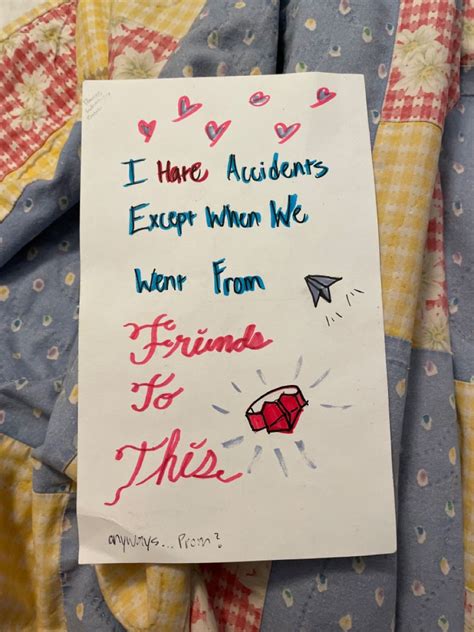 I Hate Accidents
Except When We
Went From
Friends
To
This
anyways... Prom?